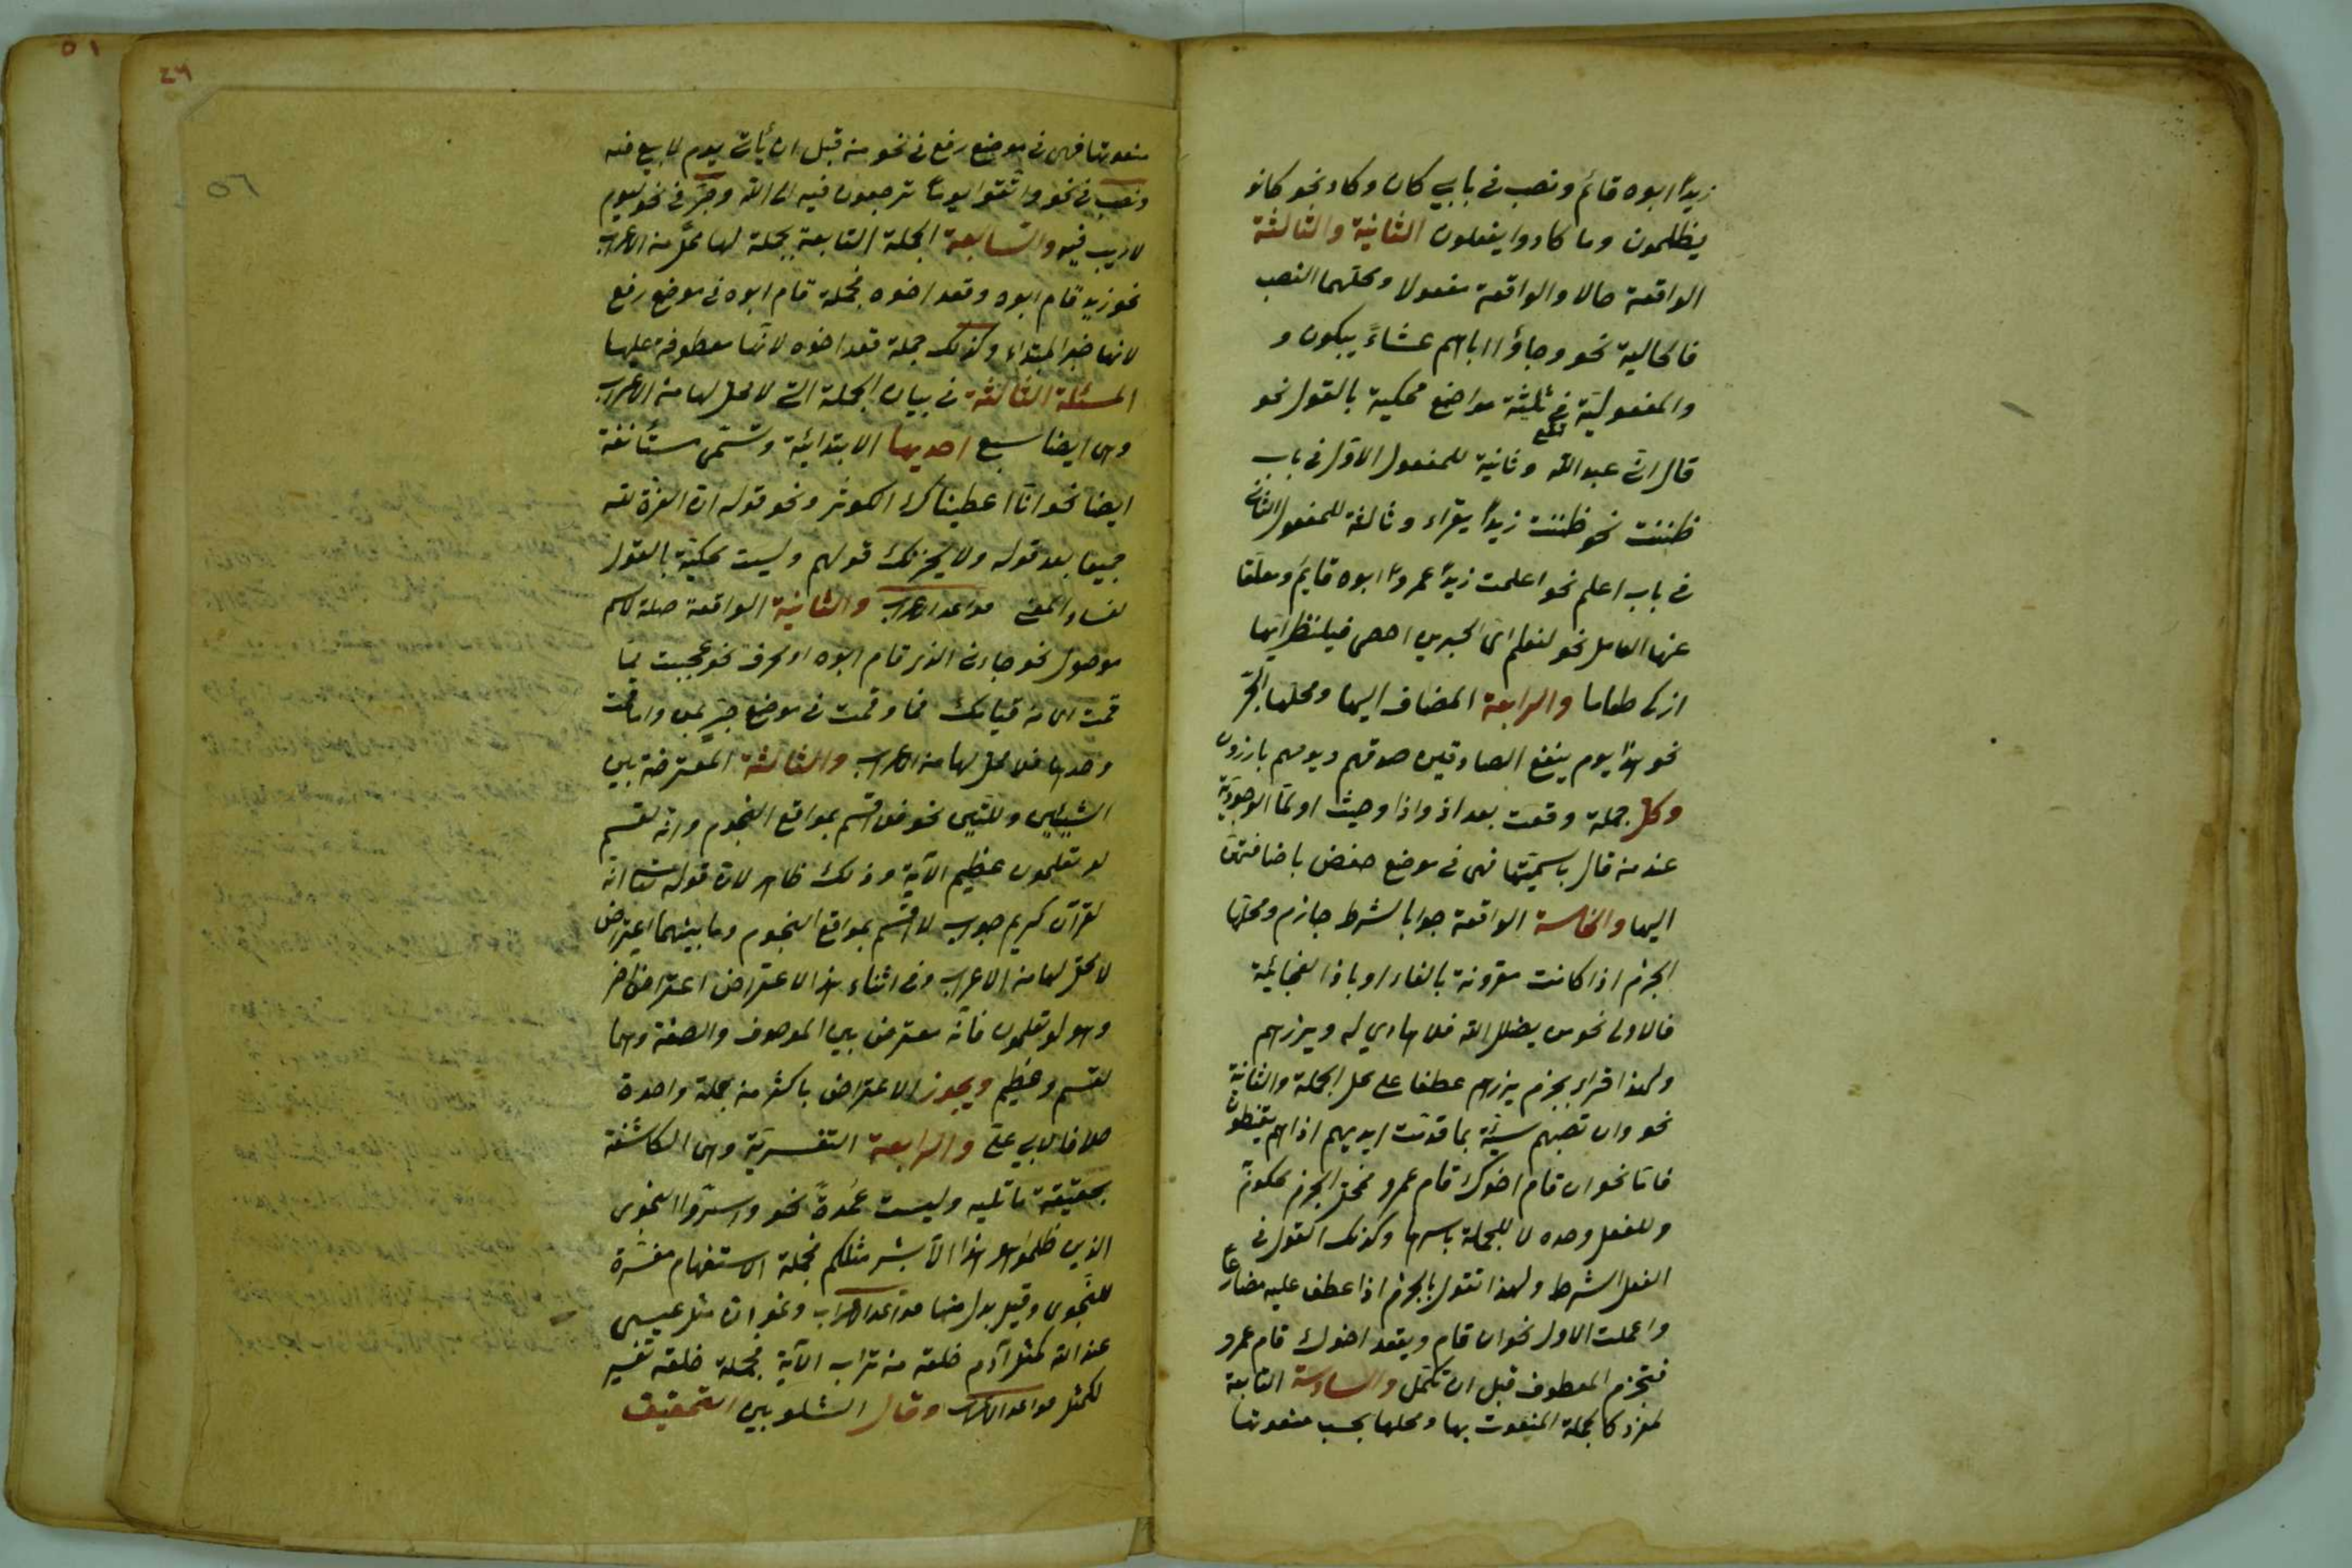 زيدا ابوه قائم ونصب في بابي كان وكاد نحو كانوا
يظلمون وما كادوا يفعلون الثانية والثالثة
الواقعة حالا والواقعة مفعولا ومحلهما النصب
فالحالية نحو وجاؤا اباهم عشاءً يبكون و
والمفعولية تقع في ثلثة مواضع محكية بالقول نحو
قال اني عبد الله وثانية للمفعول الاول في باب
ظننت نحو ظننت زيداً يقراء وثالثة للمفعول الثاني
في باب اعلم نحو اعلمت زيداً عمروا ابوه قايم ومعلقا
عنها العامل نحو لنعلم اي الحزبين احصى فلينظر ايها
ازكى طعاما والرابعة المضاف اليها ومحلها الجر
نحو هذا يوم ينفع الصادقين صدقهم ويومهم بارزون
وكل جملة وقعت بعد اذ واذا وحيث او لما الوجودية
عند من قال باسميتها فهي في موضع خفض باضافتهن
اليها والخامسة الواقعة جوابا لشرط جازم ومحلها
الجزم اذا كانت مقرونة بالفاء او باذا الفجائية
فالاولى نحو من يضلل الله فلا هادي له ويذرهم
ولهذا قراء بجزم يذرهم عطفا على محل الجملة والثانية
نحو وان تصبهم سيئة بما قدمت ايديهم اذا هم يقنطون
فاما نحو ان قام اخوك قام عمرو فمحل الجزم محكوم
وللفعل وحده لا للجملة باسرها وكذلك القول في
الفعل الشرط ولهذا تقول بالجزم اذا عطف عليه مضارعا
واعملت الاول نحو ان قام ويقعد اخوك قام عمرو
فتجزم المعطوف قبل ان تكمل والسادسة التابعة
لمفرد كالجملة المنعوت بها ومحلها بحسب منعوتها
٥١
٥٦
منعوتها فهي في موضع رفع في نحو من قبل ان يأتي يوم لا بيع فيه
ونصب في نحو واتقوا يوماً ترجعون فيه الى الله وجر في نحو ليوم
لا ريب فيه والسابعة الجملة التابعة بجملة لها محل من الاعراب
نحو زيد قام ابوه وقعد اخوه فجملة قام ابوه في موضع رفع
لانها خبر المبتداء وكذلك جملة قعد اخوه لانها معطوفة عليها
المسئلة الثالثة في بيان الجملة التي لا محل لها من الاعراب
وهي ايضا سبع احديها الابتدائية وتسمى مستأنفة
ايضا نحو انا اعطيناك الكوثر ونحو قوله ان العزة لله
جميعا بعد قوله ولا يحزنك قولهم وليست محكية بالقول
لفساد المعنى قواعد اعراب والثانية الواقعة صلة لاسم
موصول نحو جاءني الذي قام ابوه او لحرف نحو عجبت مما
قمت اي من قيامك فما وقمت في موضع جر بمن واما قمت
وحدها فلا محل لها من الاعراب والثالثة المعترضة بين
الشيئين وللتبيين نحو فلا اقسم بمواقع النجوم وانه لقسم
لو تعلمون عظيم الآية وذلك ظاهر لان قوله تعالى انه
لقرآن كريم جواب لا اقسم بمواقع النجوم وما بينهما اعتراض
لا محل لها من الاعراب وفي اثناء هذا الاعتراض اعتراض آخر
وهو لو تعلمون فانه معترض بين الموصوف والصفة وهما
لقسم وعظيم ويجوز الاعتراض باكثر من جملة واحدة
خلافا لابي علي والرابعة التفسيرية وهي الكاشفة
بحقيقة ما تليه وليست عمدة نحو واسروا النجوى
الذين ظلموا هل هذا الا بشر مثلكم فجملة الاستفهام مفسرة
للنجوى وقيل بدل منها قواعد اعراب ونحو ان مثل عيسى
عند الله كمثل آدم خلقه من تراب الآية فجملة خلقه تفسير
لكمثل قواعد الاعراب وقال الشلوبين التحقيق